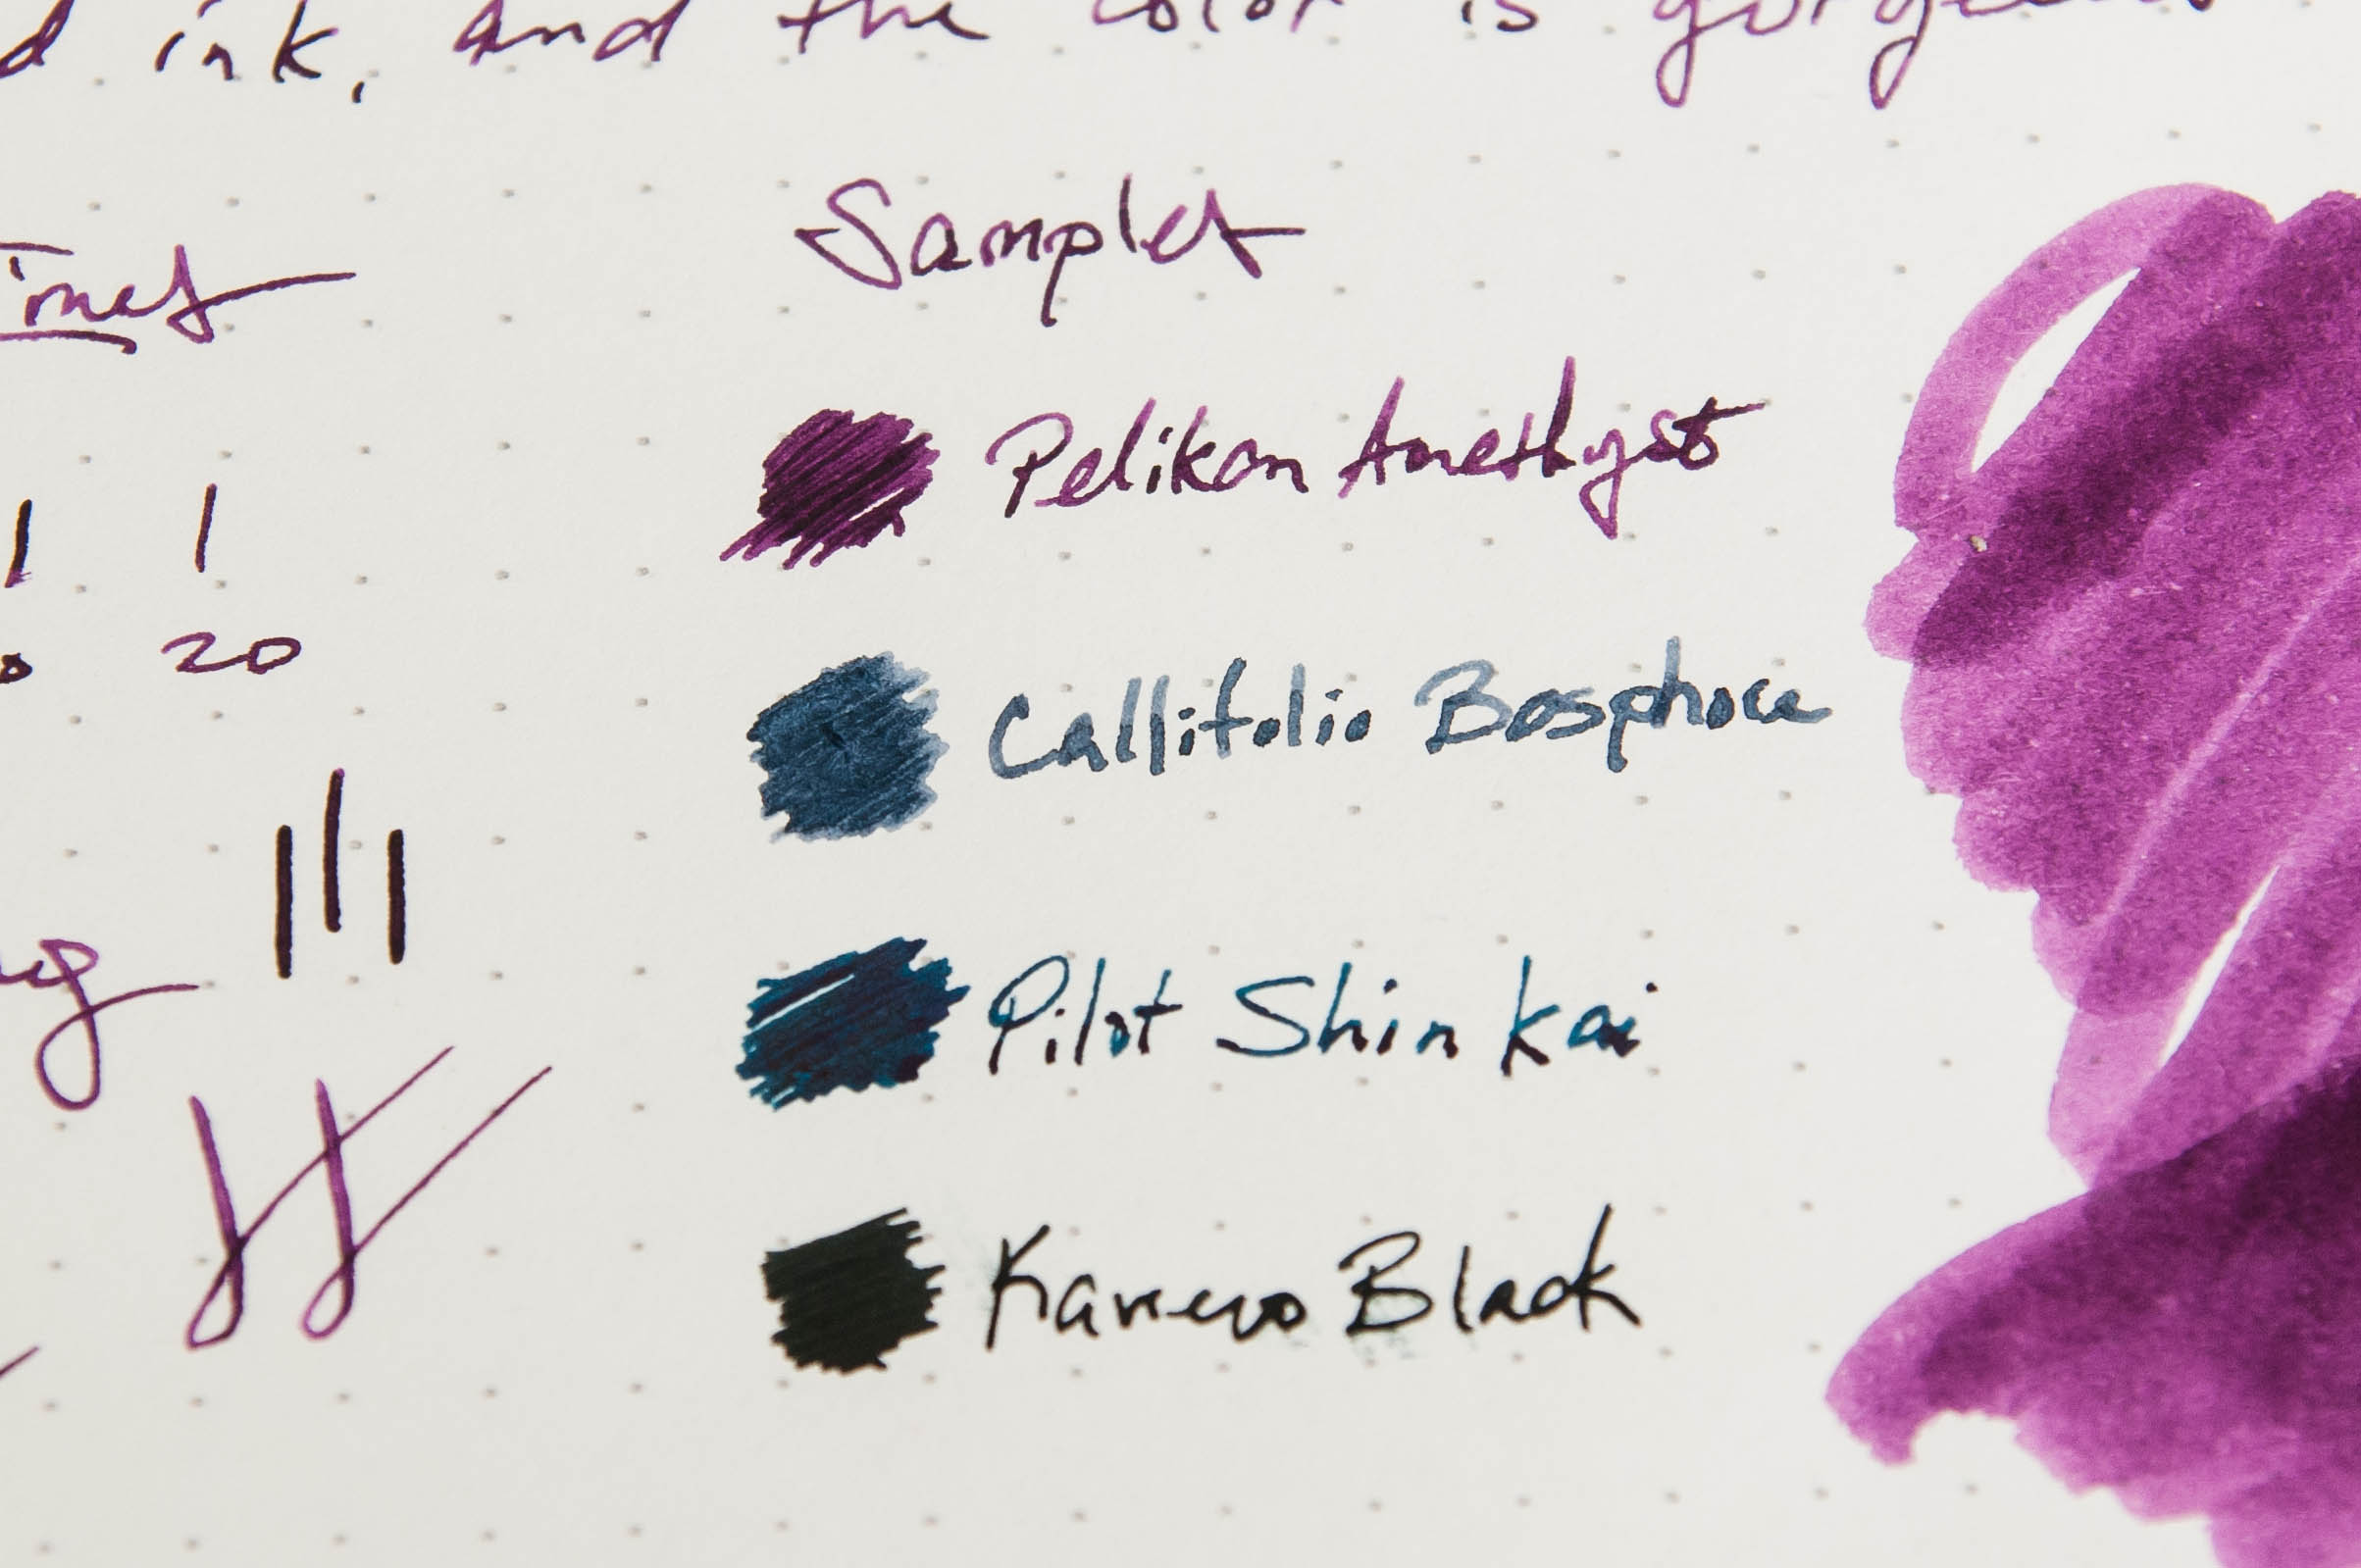 ink, and the color is gorgeous
Samples
Times
Pelikan Amethyst
1 1
20
Callifolio Bosphore
Pilot Shin kai
Kaweco Black